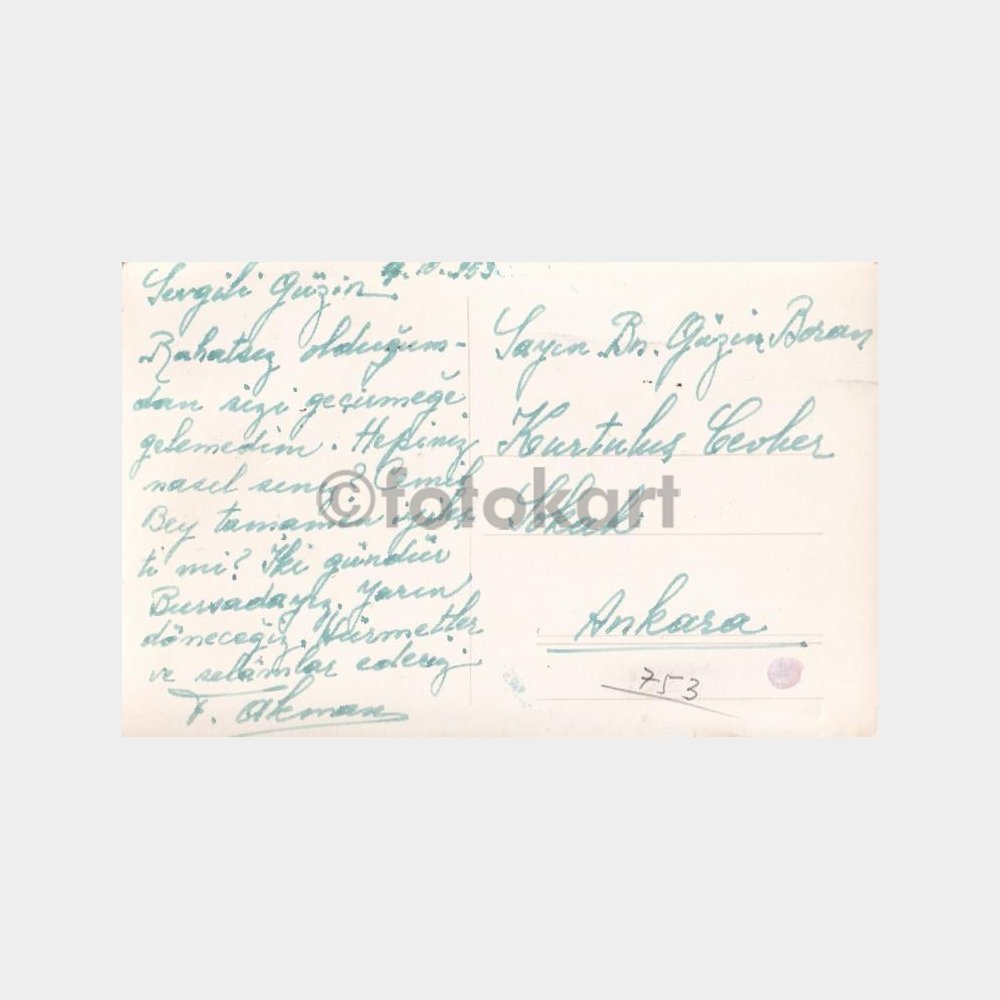 9.10.953.
Sevgili Güzin,
Rahatsız olduğum-
dan sizi geçirmeğe
gelemedim. Hepiniz
nasılsınız? Cemil
Bey tamamen iyileş-
ti mi? İki gündür
Bursadayız. Yarın
döneceğiz. Hürmetler
ve selâmlar ederiz.
F. Akman
Sayın Bn. Güzin Boran
Kurtuluş Cevher
Sokak
Ankara
753
©fotokart